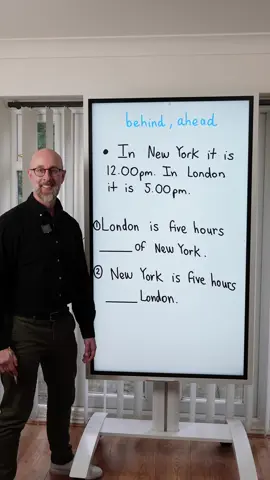 behind, ahead
• In New York it is
12.00pm. In London
it is 5.00pm.
① London is five hours
_____ of New York.
② New York is five hours
_____ London.